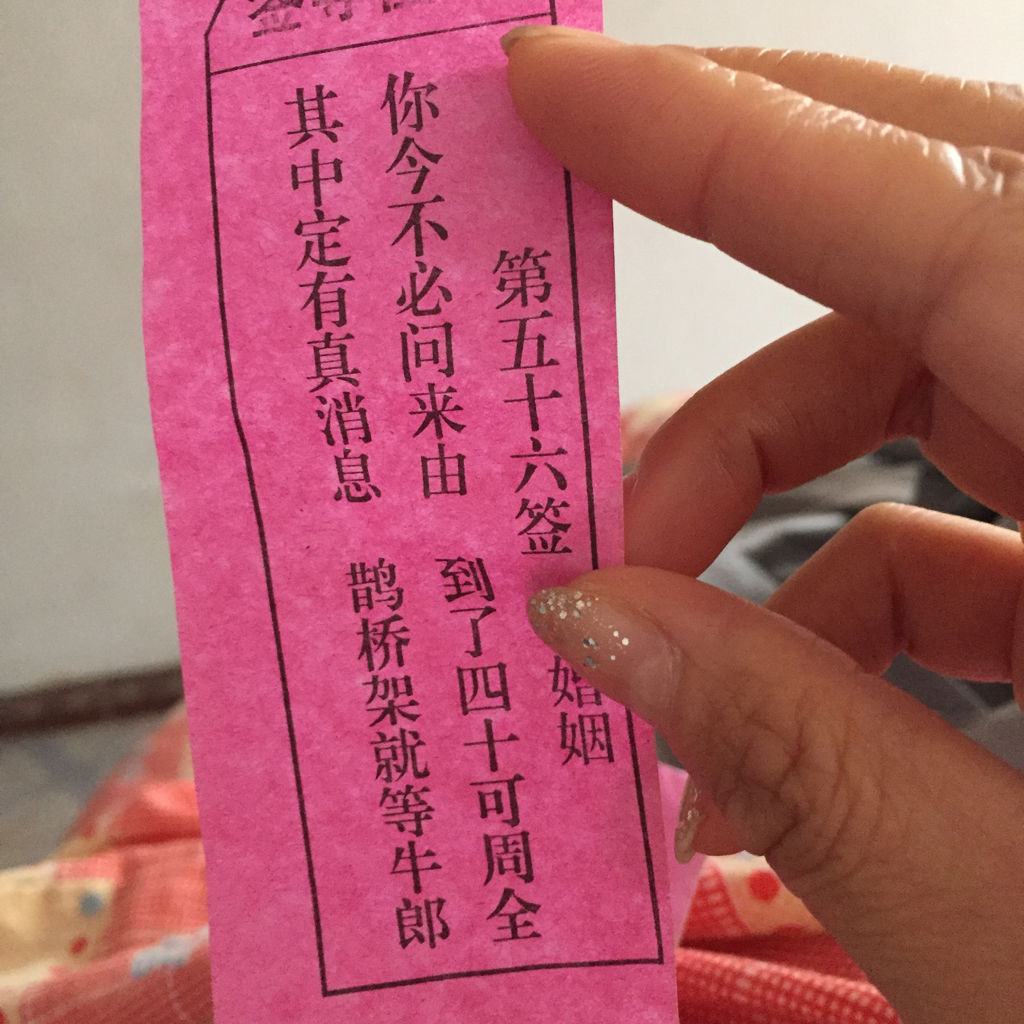 第五十六签 婚姻
你今不必问来由 到了四十可周全
其中定有真消息 鹊桥架就等牛郎